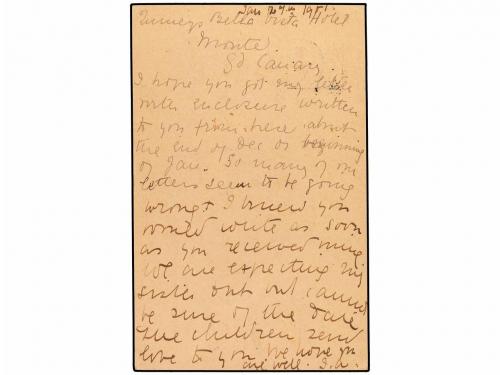 Jan 29th 1901.
Quineys Bella Vista Hotel
Monte
Gd Canary
I hope you got my letter
with enclosure written
to you from here about
the end of Dec or beginning
of Jan. So many of our
letters seem to be going
wrong & I knew you
would write as soon
as you received mine
We are expecting my
sister out but cannot
be sure of the date
The children send
love to you We hope you
are well.